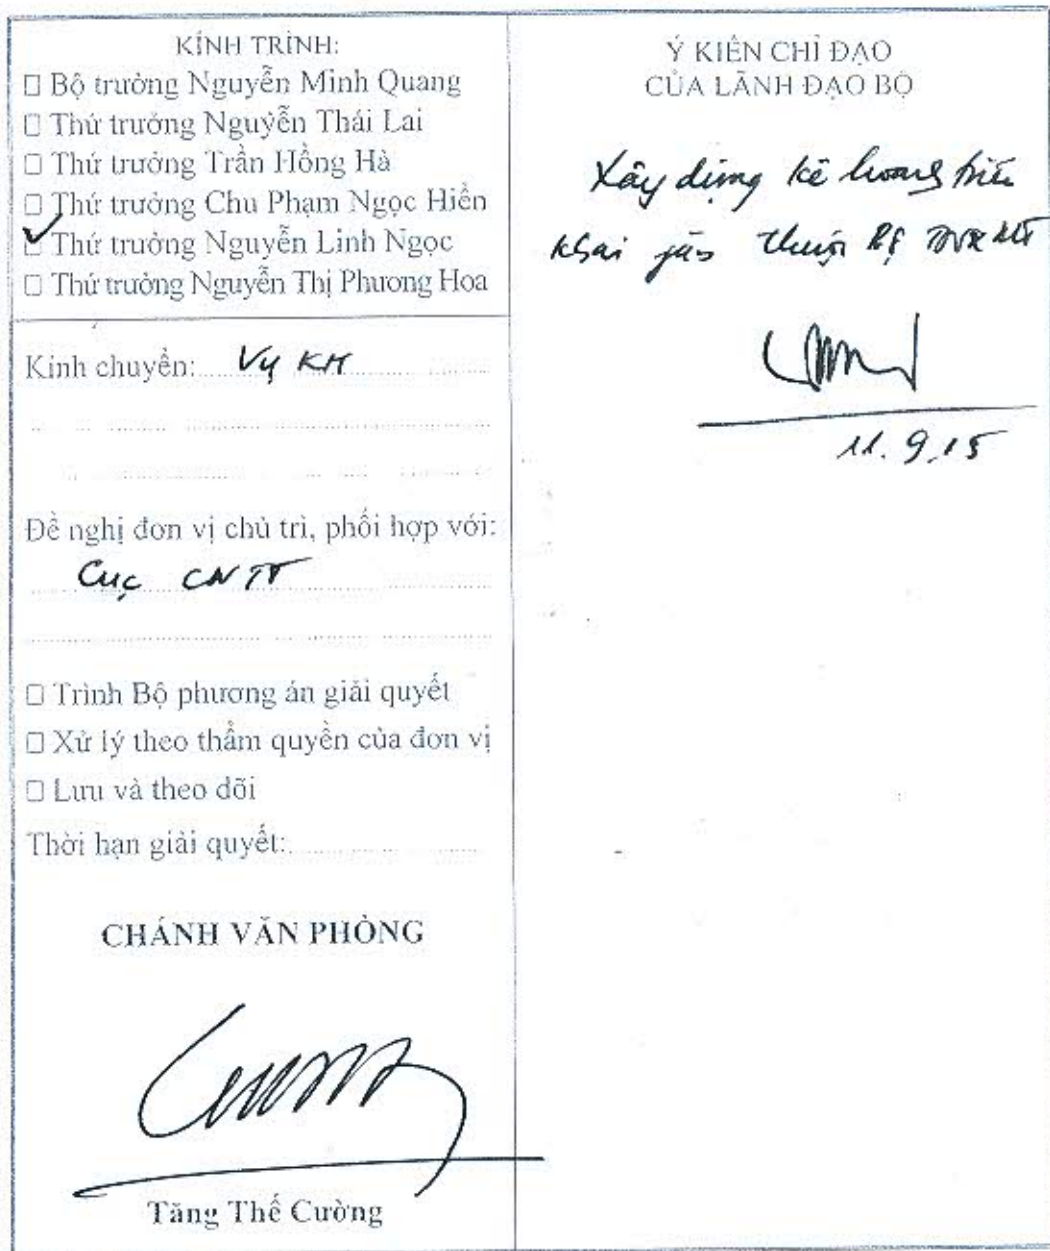 KÍNH TRÌNH:
□ Bộ trưởng Nguyễn Minh Quang
□ Thứ trưởng Nguyễn Thái Lai
□ Thứ trưởng Trần Hồng Hà
□ Thứ trưởng Chu Phạm Ngọc Hiển
☑ Thứ trưởng Nguyễn Linh Ngọc
□ Thứ trưởng Nguyễn Thị Phương Hoa
Kính chuyển: Vụ KH
Đề nghị đơn vị chủ trì, phối hợp với:
Cục CNTT
□ Trình Bộ phương án giải quyết
□ Xử lý theo thẩm quyền của đơn vị
□ Lưu và theo dõi
Thời hạn giải quyết:
CHÁNH VĂN PHÒNG
Tăng Thế Cường
Ý KIẾN CHỈ ĐẠO
CỦA LÃNH ĐẠO BỘ
Xây dựng kế hoạch triển
khai thuộc Bộ TNMT
11.9.15